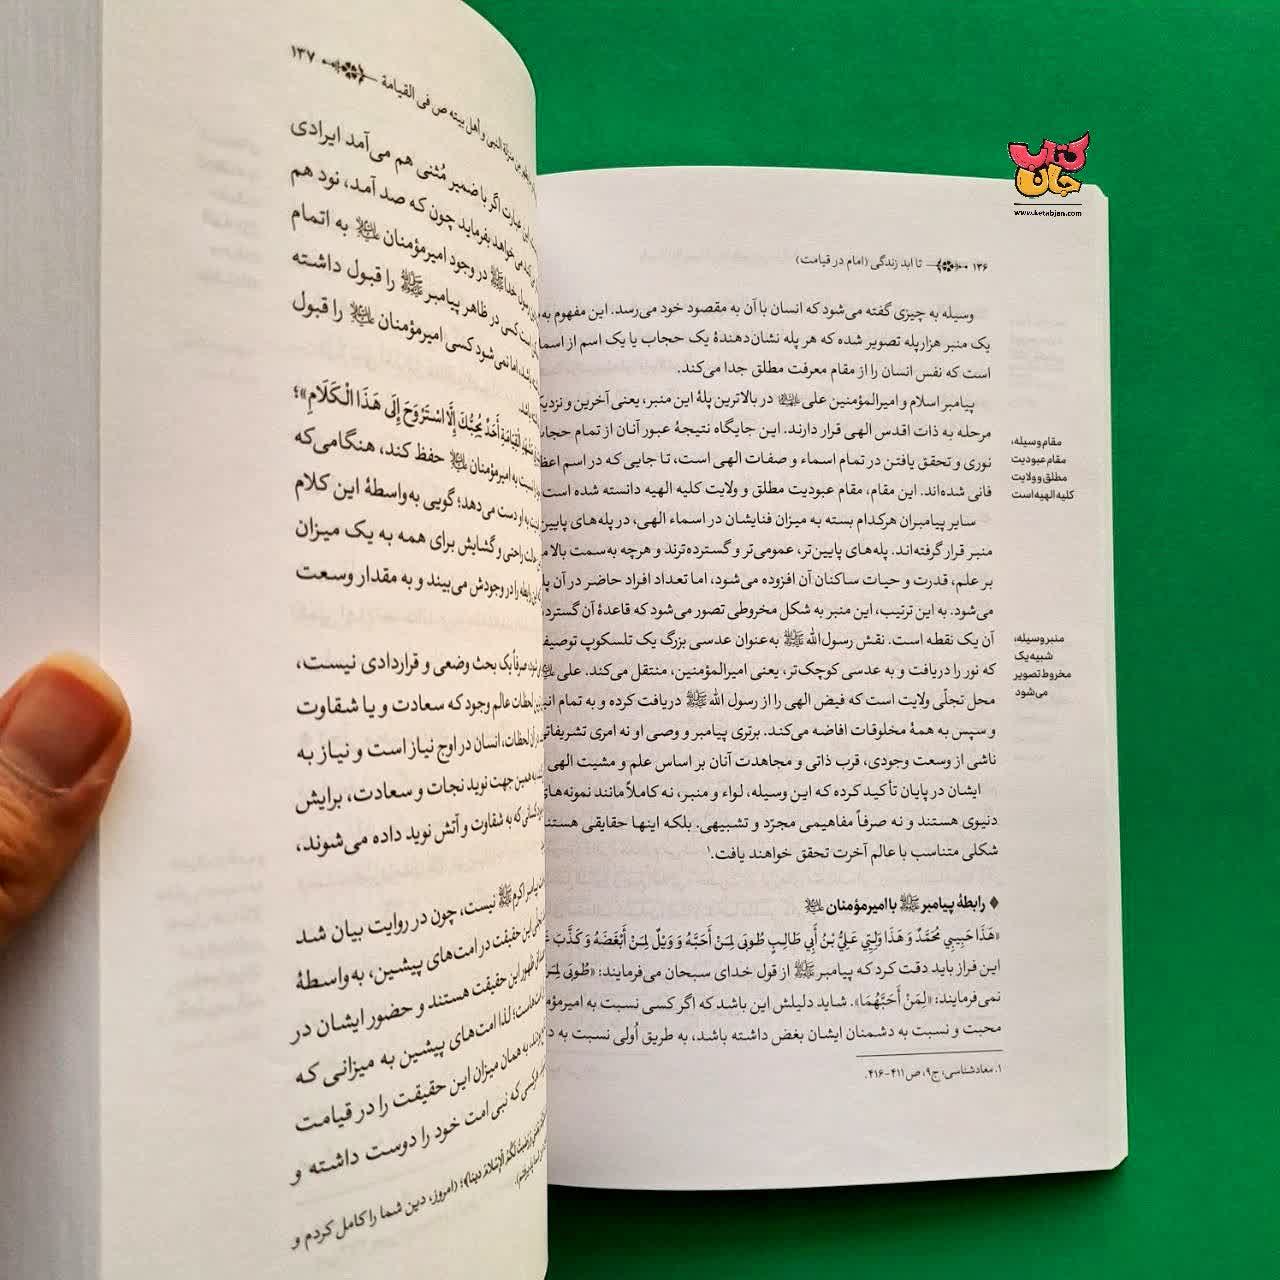 کتاب جان
www.ketabjan.com
۱۳۶ تا ابد زندگی (امام در قیامت)
وسیله به چیزی گفته می‌شود که انسان با آن به مقصود خود می‌رسد. این مفهوم به
یک منبر هزارپله تصویر شده که هر پله نشان‌دهندهٔ یک حجاب یا یک اسم از
است که نفس انسان را از مقام معرفت مطلق جدا می‌کند.
پیامبر اسلام و امیرالمؤمنین علی علیه‌السلام در بالاترین پلهٔ این منبر، یعنی آخرین و
مرحله به ذات اقدس الهی قرار دارند. این جایگاه نتیجهٔ عبور آنان از تمام
نوری و تحقق یافتن در تمام اسماء و صفات الهی است، تا جایی که در اسم
فانی شده‌اند. این مقام، مقام عبودیت مطلق و ولایت کلیه الهیه دانسته شده است
مقام وسیله،
مقام عبودیت
مطلق و ولایت
کلیه الهیه است
سایر پیامبران هرکدام بسته به میزان فنایشان در اسماء الهی، در پله‌های
منبر قرار گرفته‌اند. پله‌های پایین‌تر، عمومی‌تر و گسترده‌ترند و هرچه به‌سمت بالا
بر علم، قدرت و حیات ساکنان آن افزوده می‌شود، اما تعداد افراد حاضر در آن
می‌شود. به این ترتیب، این منبر به شکل مخروطی تصور می‌شود که قاعدهٔ آن
آن یک نقطه است. نقش رسول‌الله ﷺ به‌عنوان عدسی بزرگ یک تلسکوپ
که نور را دریافت و به عدسی کوچک‌تر، یعنی امیرالمؤمنین، منتقل می‌کند. علی
محل تجلّی ولایت است که فیض الهی را از رسول الله ﷺ دریافت کرده و به تمام
و سپس به همهٔ مخلوقات افاضه می‌کند. برتری پیامبر و وصی او نه امری
ناشی از وسعت وجودی، قرب ذاتی و مجاهدت آنان بر اساس علم و مشیت الهی
منبر وسیله،
شبیه یک
مخروط تصویر
می‌شود
ایشان در پایان تأکید کرده که این وسیله، لواء و منبر، نه کاملاً مانند نمونه‌های
دنیوی هستند و نه صرفاً مفاهیمی مجرّد و تشبیهی. بلکه اینها حقایقی
شکلی متناسب با عالم آخرت تحقق خواهند یافت.۱
♦ رابطهٔ پیامبر ﷺ با امیرمؤمنان علیه‌السلام
«هَذَا حَبِیبِي مُحَمَّدٌ وَ هَذَا وَلِیِّي عَلِيُّ بْنُ أَبِي طَالِبٍ طُوبَی لِمَنْ أَحَبَّهُ وَ وَیْلٌ لِمَنْ أَبْغَضَهُ وَ کَذَّبَ
این فراز باید دقت کرد که پیامبر ﷺ از قول خدای سبحان می‌فرمایند: «طُوبَی
نمی‌فرمایند: «لِمَنْ أَحَبَّهُمَا». شاید دلیلش این باشد که اگر کسی نسبت به
محبت و نسبت به دشمنان ایشان بغض داشته باشد، به طریق اُولی نسبت به
۱. معادشناسی، ج۹، ص۴۱۱-۴۱۶.
النبی و أهل بیته ص فی القیامة ۱۳۷
عبارت اگر با ضمیر مُثنی هم می‌آمد ایرادی
می‌خواهد بفرماید چون که صد آمد، نود هم
رسول خدا ﷺ در وجود امیرمؤمنان علیه‌السلام به اتمام
است کسی در ظاهر پیامبر ﷺ را قبول داشته
باشد، اما نمی‌شود کسی امیرمؤمنان علیه‌السلام را قبول
باشد.
الْقِیَامَةِ أَحَدٌ یُحِبُّكَ إِلَّا اسْتَرْوَحَ إِلَی هَذَا الْکَلَامِ»؛
نسبت به امیرمؤمنان علیه‌السلام حفظ کند، هنگامی‌که
به او دست می‌دهد؛ گویی به‌واسطهٔ این کلام
حالت راحتی و گشایش برای همه به یک میزان
این رابطه را در وجودش می‌بیند و به مقدار وسعت
صرفاً یک بحث وضعی و قراردادی نیست،
لحظات عالم وجود که سعادت و یا شقاوت
آن لحظات، انسان در اوج نیاز است و نیاز به
به همین جهت نوید نجات و سعادت، برایش
کسانی که به شقاوت و آتش نوید داده می‌شوند،
پیامبر اکرم ﷺ نیست، چون در روایت بیان شد
این حقیقت در امت‌های پیشین، به‌واسطهٔ
ظهور این حقیقت هستند و حضور ایشان در
لذا امت‌های پیشین به میزانی که
به همان میزان این حقیقت را در قیامت
که نبی امت خود را دوست داشته و
لَکُمُ الْإِسْلَامَ دِینًا﴾؛ (امروز، دین شما را کامل کردم و